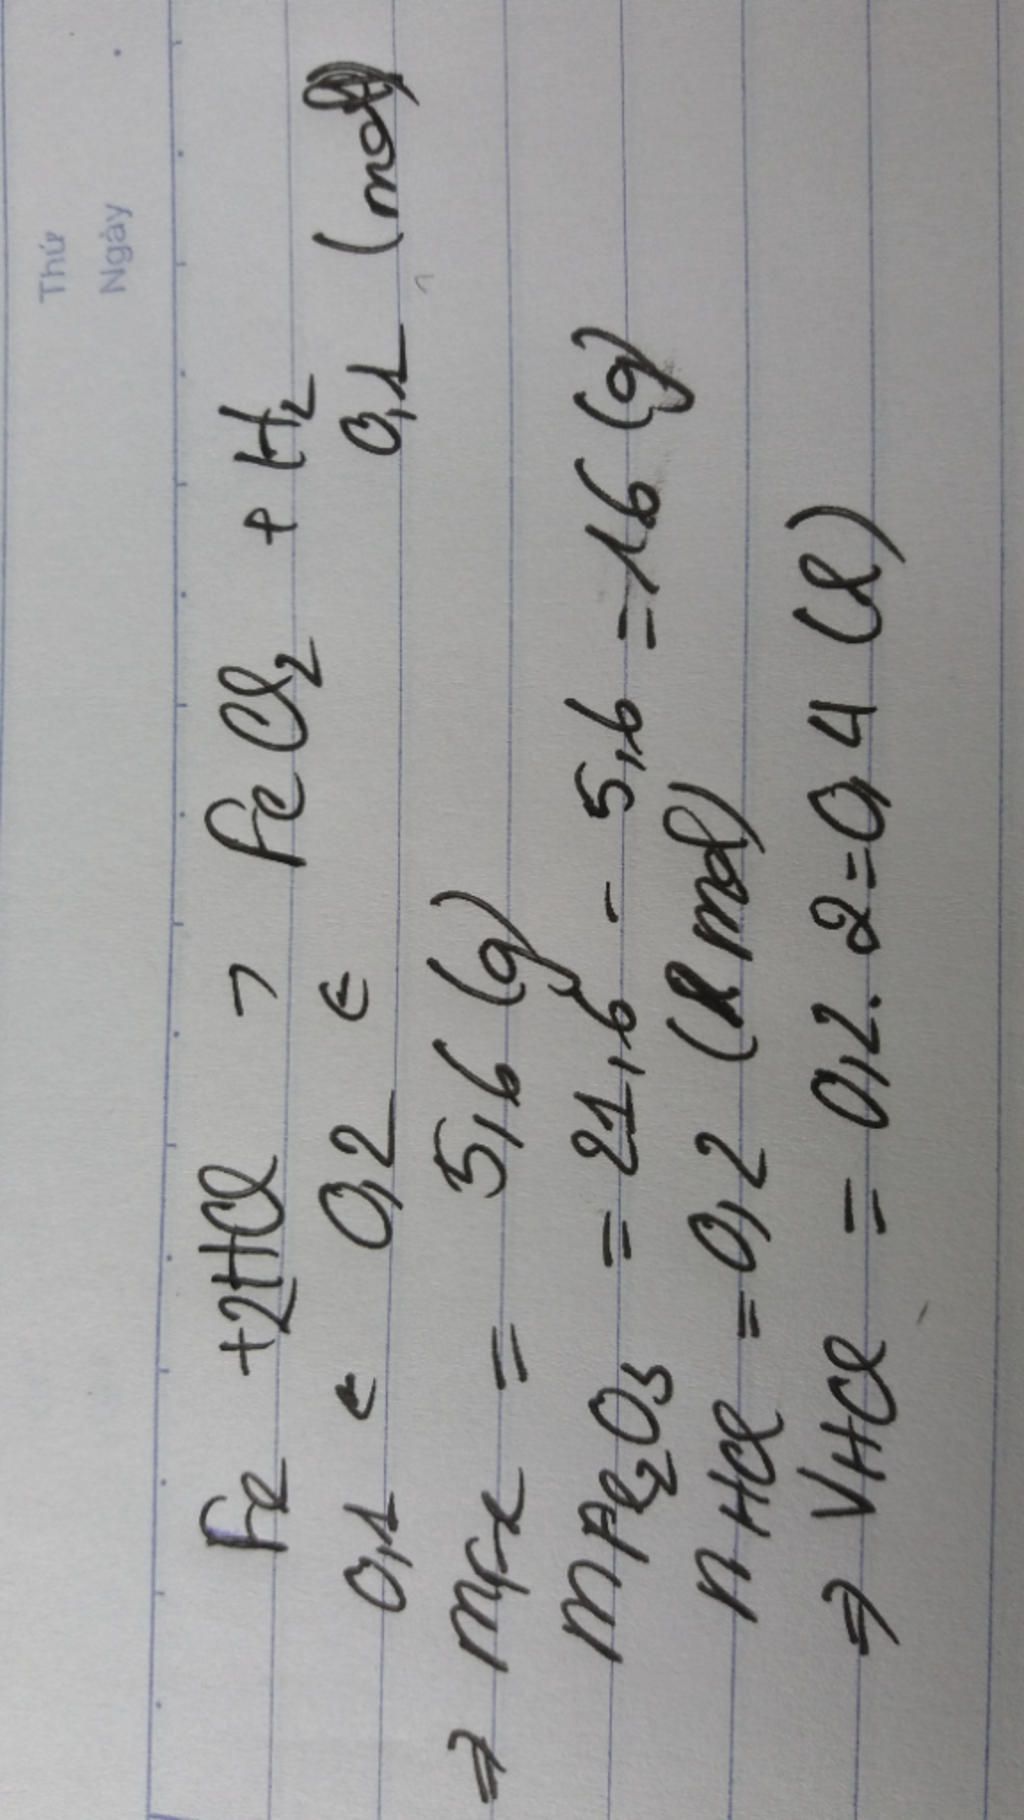 Thứ
Ngày
Fe + 2HCl → FeCl₂ + H₂
0,1 ← 0,2 ← 0,1 (mol)
⇒ mFe = 5,6 (g)
mFe₂O₃ = 21,6 - 5,6 = 16 (g)
nHCl = 0,2 (mol)
⇒ VHCl = 0,2.2 = 0,4 (l)